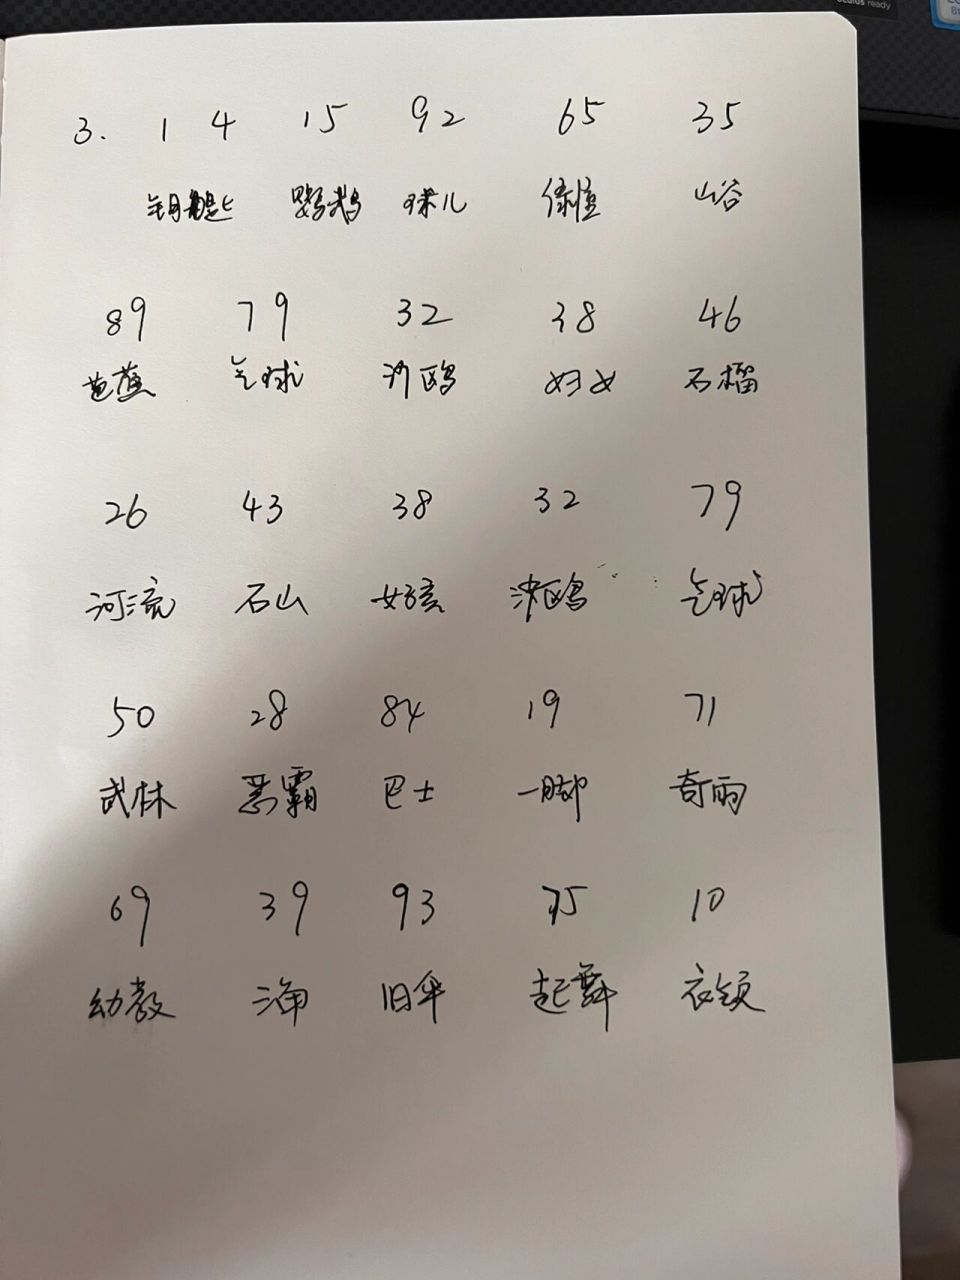 oculus ready
3. 1 4 15 92 65 35
钥匙 鹦鹉 球儿 山谷
89 79 32 38 46
芭蕉 气球 沙鸥 妇女 石榴
26 43 38 32 79
河流 石山 女孩 沙鸥 气球
50 28 84 19 71
武林 恶霸 巴士 一脚 奇雨
69 39 93 75 10
幼教 三角 旧伞 起舞 衣领